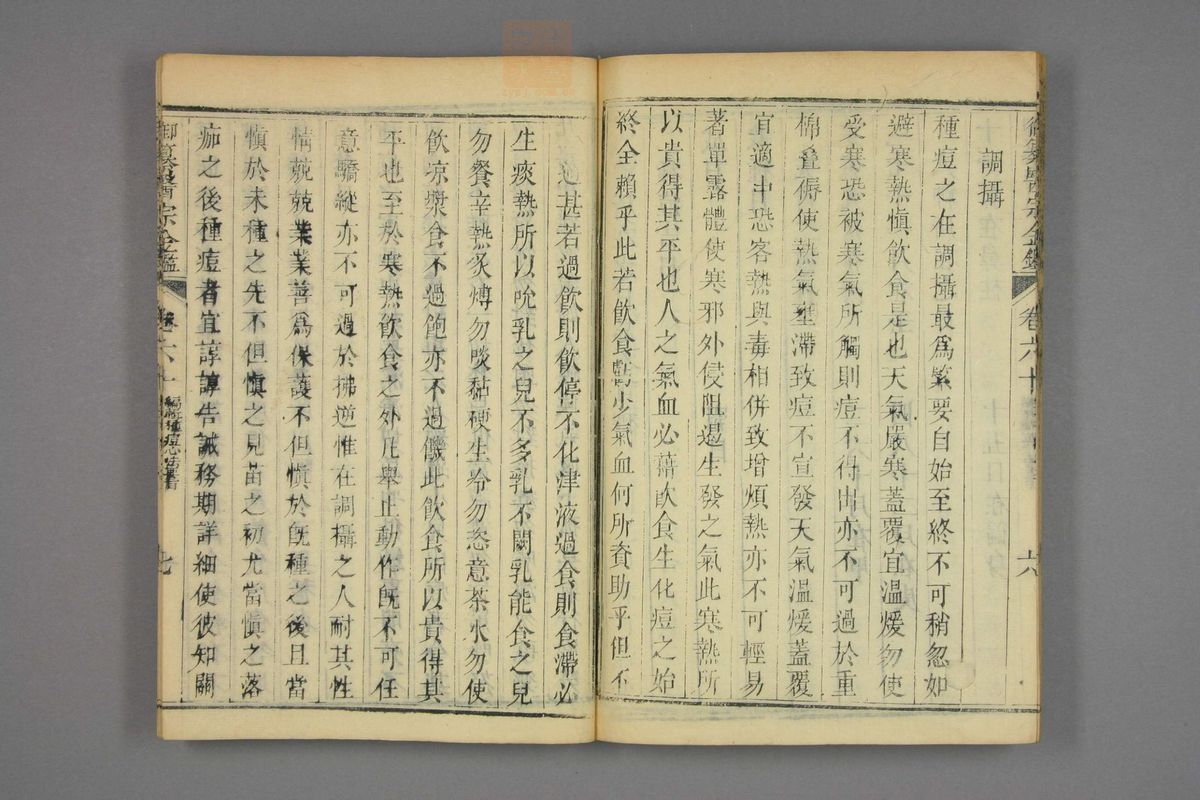 御纂醫宗金鑑 卷六十 六
調攝
種痘之在調攝最爲緊要自始至終不可稍忽如
避寒熱慎飲食是也天氣嚴寒蓋覆宜溫煖勿使
受寒恐被寒氣所觸則痘不得出亦不可過於重
棉疊褥使熱氣壅滯致痘不宣發天氣溫煖蓋覆
宜適中恐客熱與毒相併致增煩熱亦不可輕易
著單露體使寒邪外侵阻遏生發之氣此寒熱所
以貴得其平也人之氣血必藉飲食生化痘之始
終全賴乎此若飲食虧少氣血何所資助乎但不
過甚若過飲則飲停不化津液過食則食滯必
生痰熱所以吮乳之兒不多乳不闕乳能食之兒
勿餐辛熱炙煿勿啖黏硬生冷勿恣意茶水勿使
飲凉漿食不過飽亦不過饑此飲食所以貴得其
平也至於寒熱飲食之外凡舉止動作旣不可任
意驕縱亦不可過於拂逆惟在調攝之人耐其性
情兢兢業業善爲保護不但慎於旣種之後且當
慎於未種之先不但慎之見苗之初尤當慎之落
痂之後種痘者宜諄諄告誡務期詳細使彼知關
御纂醫宗金鑑 卷六十 編輯種痘心法要旨 七